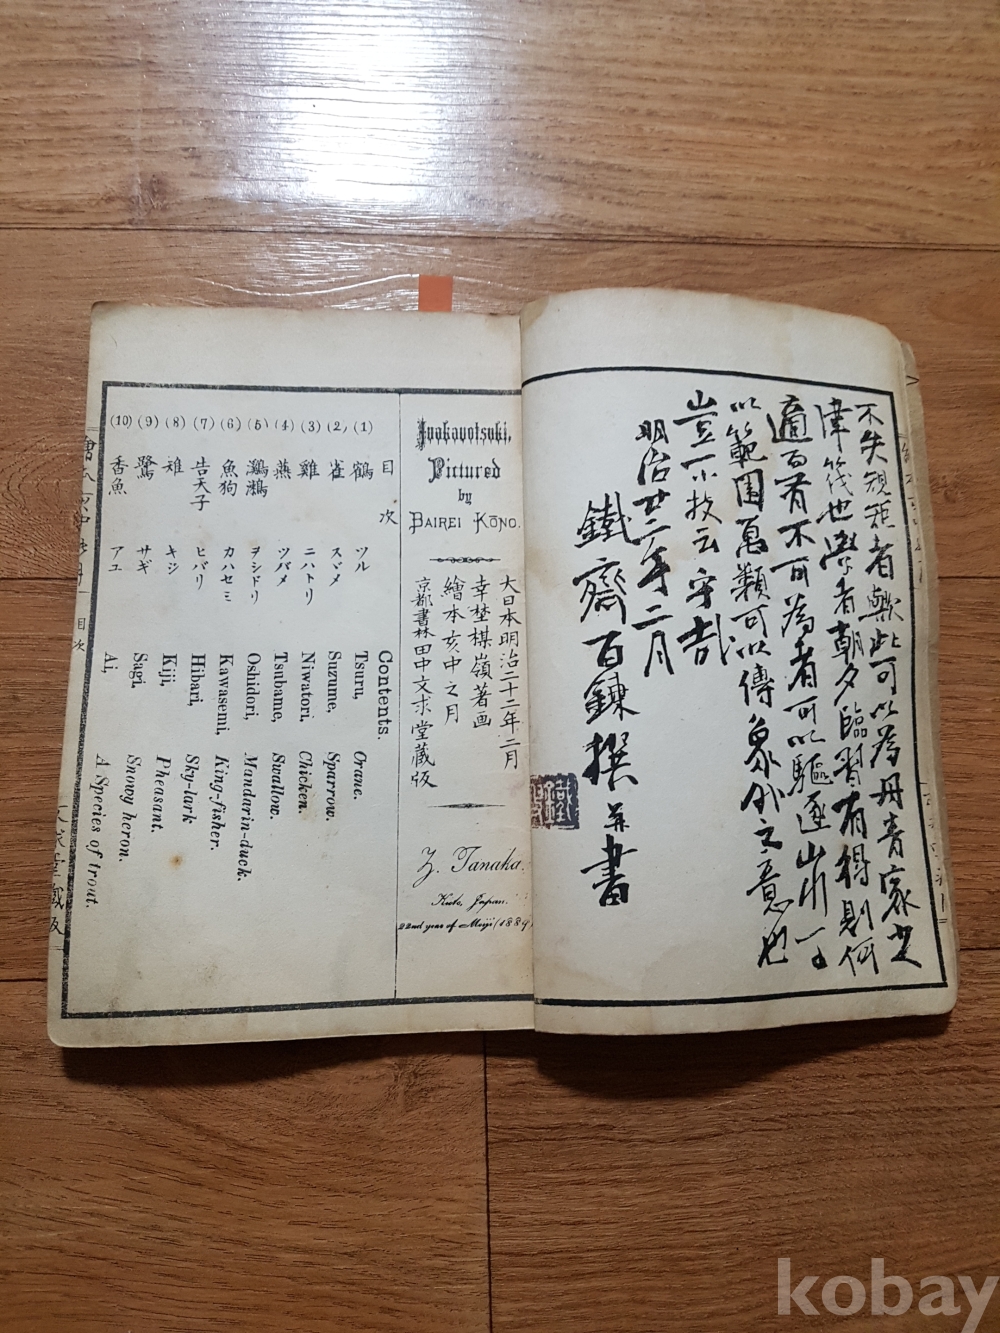 不失規矩者歟此可以為丹青家之
津筏也學者朝夕臨習有得則何
適而者不可為者可以驅逐山川一
以範圍萬類可以傳象外之意也
豈小技云乎哉
明治廿二年二月
鐵齋百鍊撰并書
Inakanotsuki,
Pictured
by
BAIREI KŌNO.
大日本明治二十二年二月
幸埜楳嶺著画
繪本亥中之月
京都書林田中文求堂藏版
Z. Tanaka.
Kioto, Japan.
22nd year of Meiji (1889)
目次
Contents.
(1) 鶴 ツル Tsuru, Crane.
(2) 雀 スヾメ Suzume, Sparrow.
(3) 雞 ニハトリ Niwatori, Chicken.
(4) 燕 ツバメ Tsubame, Swallow.
(5) 鸂鶒 ヲシドリ Oshidori, Mandarin-duck.
(6) 魚狗 カハセミ Kawasemi, King-fisher.
(7) 告天子 ヒバリ Hibari, Sky-lark
(8) 雉 キジ Kiji, Pheasant.
(9) 鷺 サギ Sagi, Snowy heron.
(10) 香魚 アユ Ai, A Species of trout.
目次
kobay